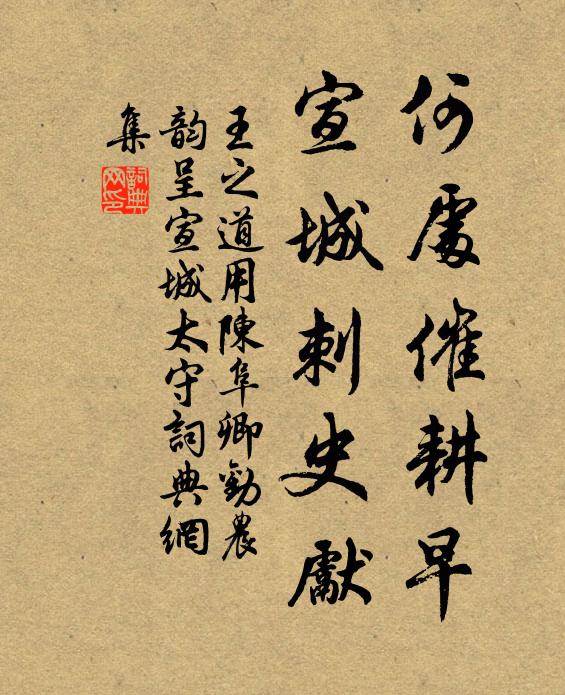 何處催耕早
宣城刺史獻
王之道用陳阜卿勸農
韵呈宣城太守詞典網
集
詞典网印